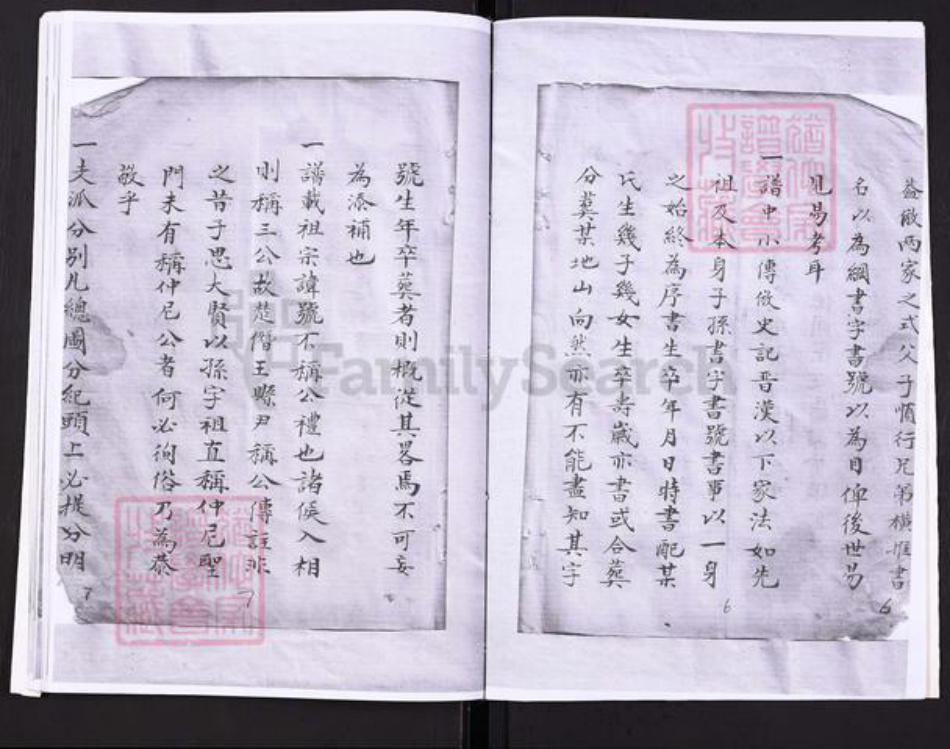 兩家之式父子順行兄弟橫推書
名以為綱書字書號以為目俾後世易
見易考耳
一譜中小傳倣史記晉漢以下家法如先
祖及本身子孫書字書號書事以一身
之始終為序書生卒年月日時書配某
氏生幾子幾女生卒壽歲亦書或合葬
分葬某地山向然亦有不能盡知其字
6
6
號生年卒葬者則概從其畧焉不可妄
為添補也
一譜載祖宗諱號不稱公禮也諸侯入相
則稱三公故楚僭王縣尹稱公傳註非
之昔子思大賢以孫字祖直稱仲尼聖
門未有稱仲尼公者何必徇俗乃為恭
敬乎
一支派分別凡總圖分紀頭上必提分明
7
7
FamilySearch